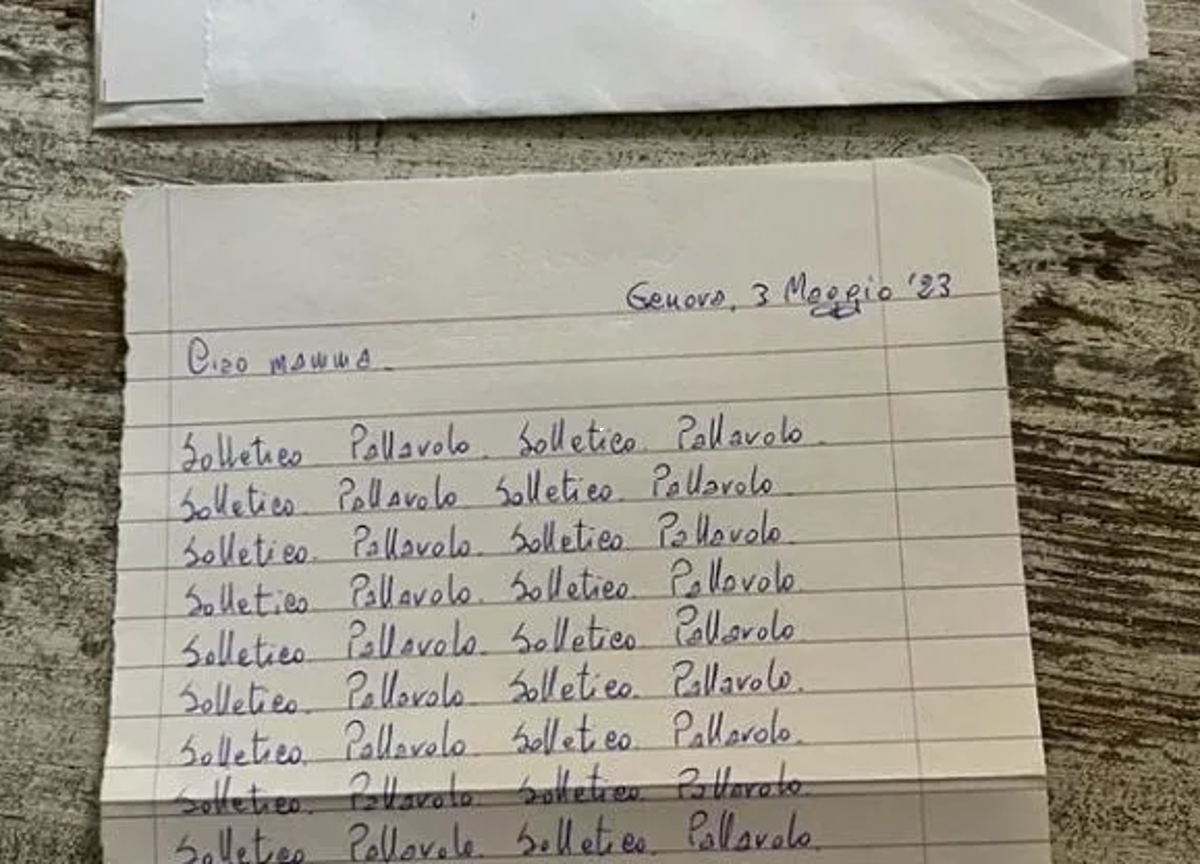 Genova, 3 Maggio '23
Ciao mamma.
Solletico. Pallavolo. Solletico. Pallavolo.
Solletico. Pallavolo. Solletico. Pallavolo.
Solletico. Pallavolo. Solletico. Pallavolo.
Solletico. Pallavolo. Solletico. Pallavolo.
Solletico. Pallavolo. Solletico. Pallavolo.
Solletico. Pallavolo. Solletico. Pallavolo.
Solletico. Pallavolo. Solletico. Pallavolo.
Solletico. Pallavolo. Solletico. Pallavolo.
Solletico. Pallavolo. Solletico. Pallavolo.